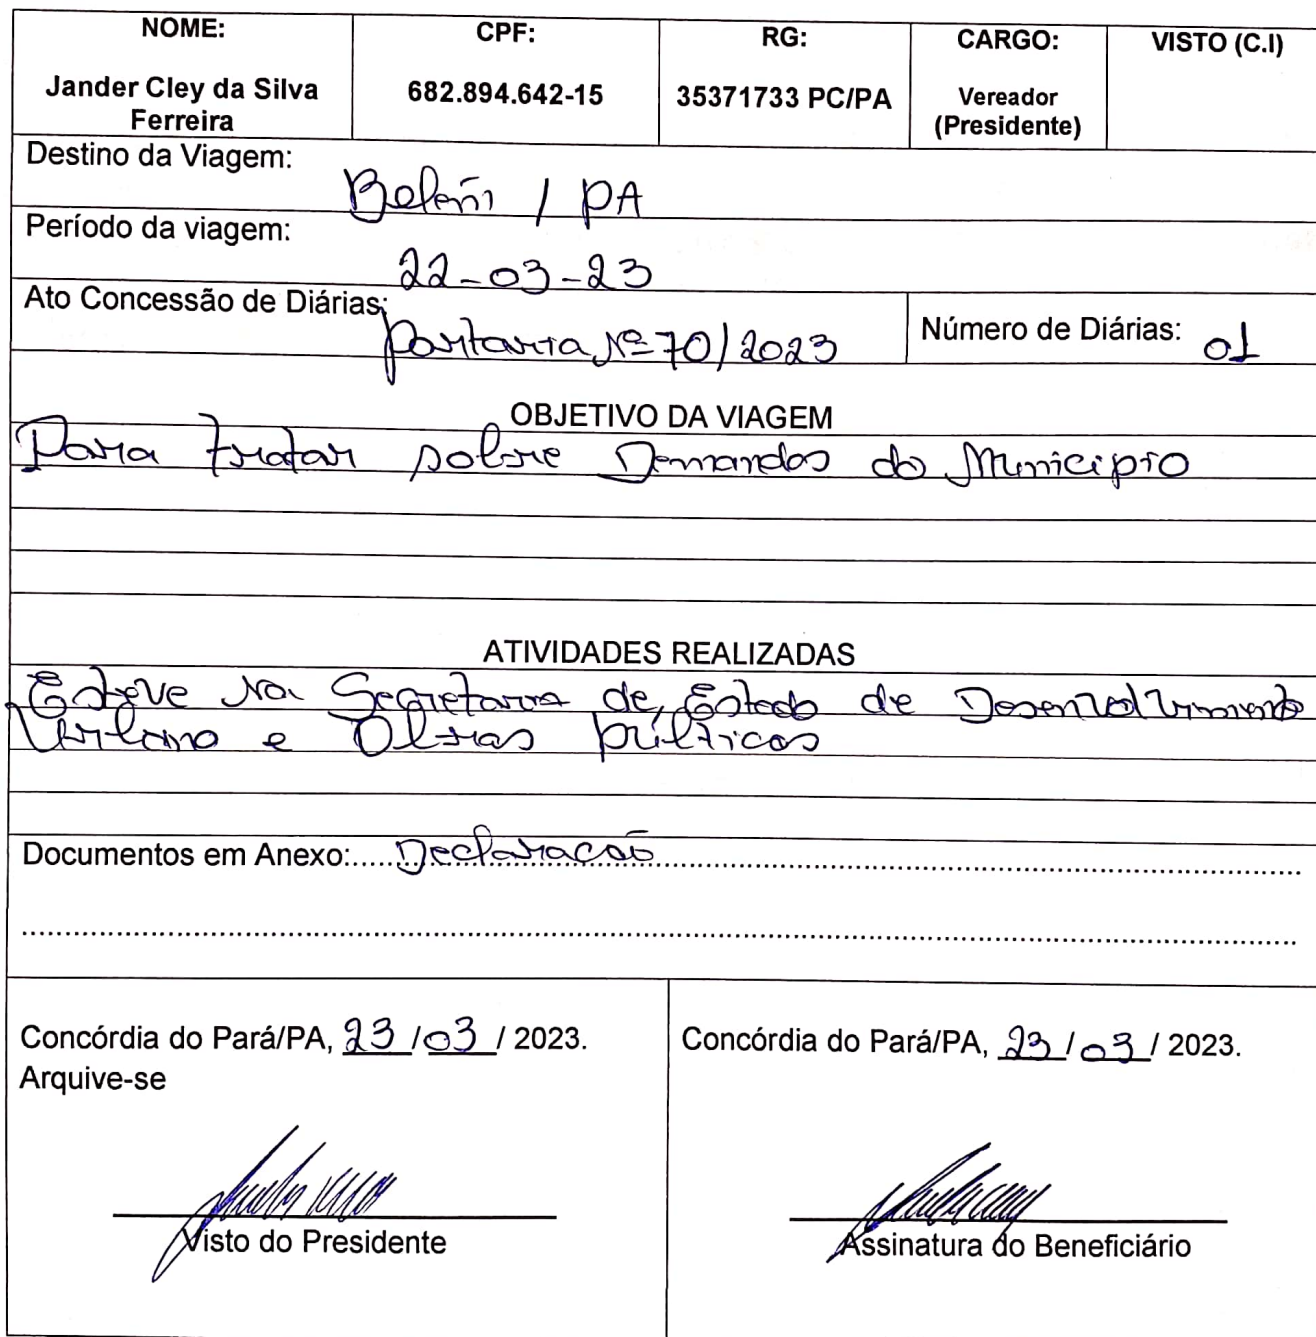 NOME: CPF: RG: CARGO: VISTO (C.I)
Jander Cley da Silva Ferreira 682.894.642-15 35371733 PC/PA Vereador (Presidente)
Destino da Viagem:
Belém / PA
Período da viagem:
22-03-23
Ato Concessão de Diárias: Portaria Nº 70/2023 Número de Diárias: 01
OBJETIVO DA VIAGEM
Para tratar sobre Demandas do Municipio
ATIVIDADES REALIZADAS
Esteve Na Secretaria de Estado de Desenvolvimento
Urbano e Obras públicas
Documentos em Anexo:.....Declaracao
Concórdia do Pará/PA, 23 / 03 / 2023.
Arquive-se
Visto do Presidente
Concórdia do Pará/PA, 23 / 03 / 2023.
Assinatura do Beneficiário